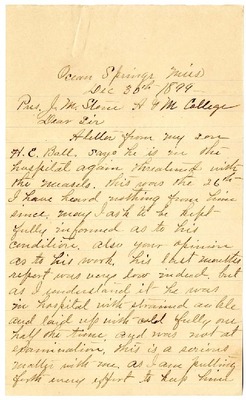 Ocean Springs, Miss
Dec 30th 1899
Pres. J. M. Stone A & M College
Dear Sir
A letter from my son
H. C. Ball. says he is in the
hospital again threatned with
the measels. this was the 26th
I have heard nothing from him
since. may I ask to be kept
fully informed as to his
condition. also your opinion
as to his work. his last months
report was very low indeed but
as I understand it he was
in hospital with strained ancle
and laid up with cold fully one
half the time. and was not at
examination. this is a serious
matter with me. as I am putting
forth every effort to keep him